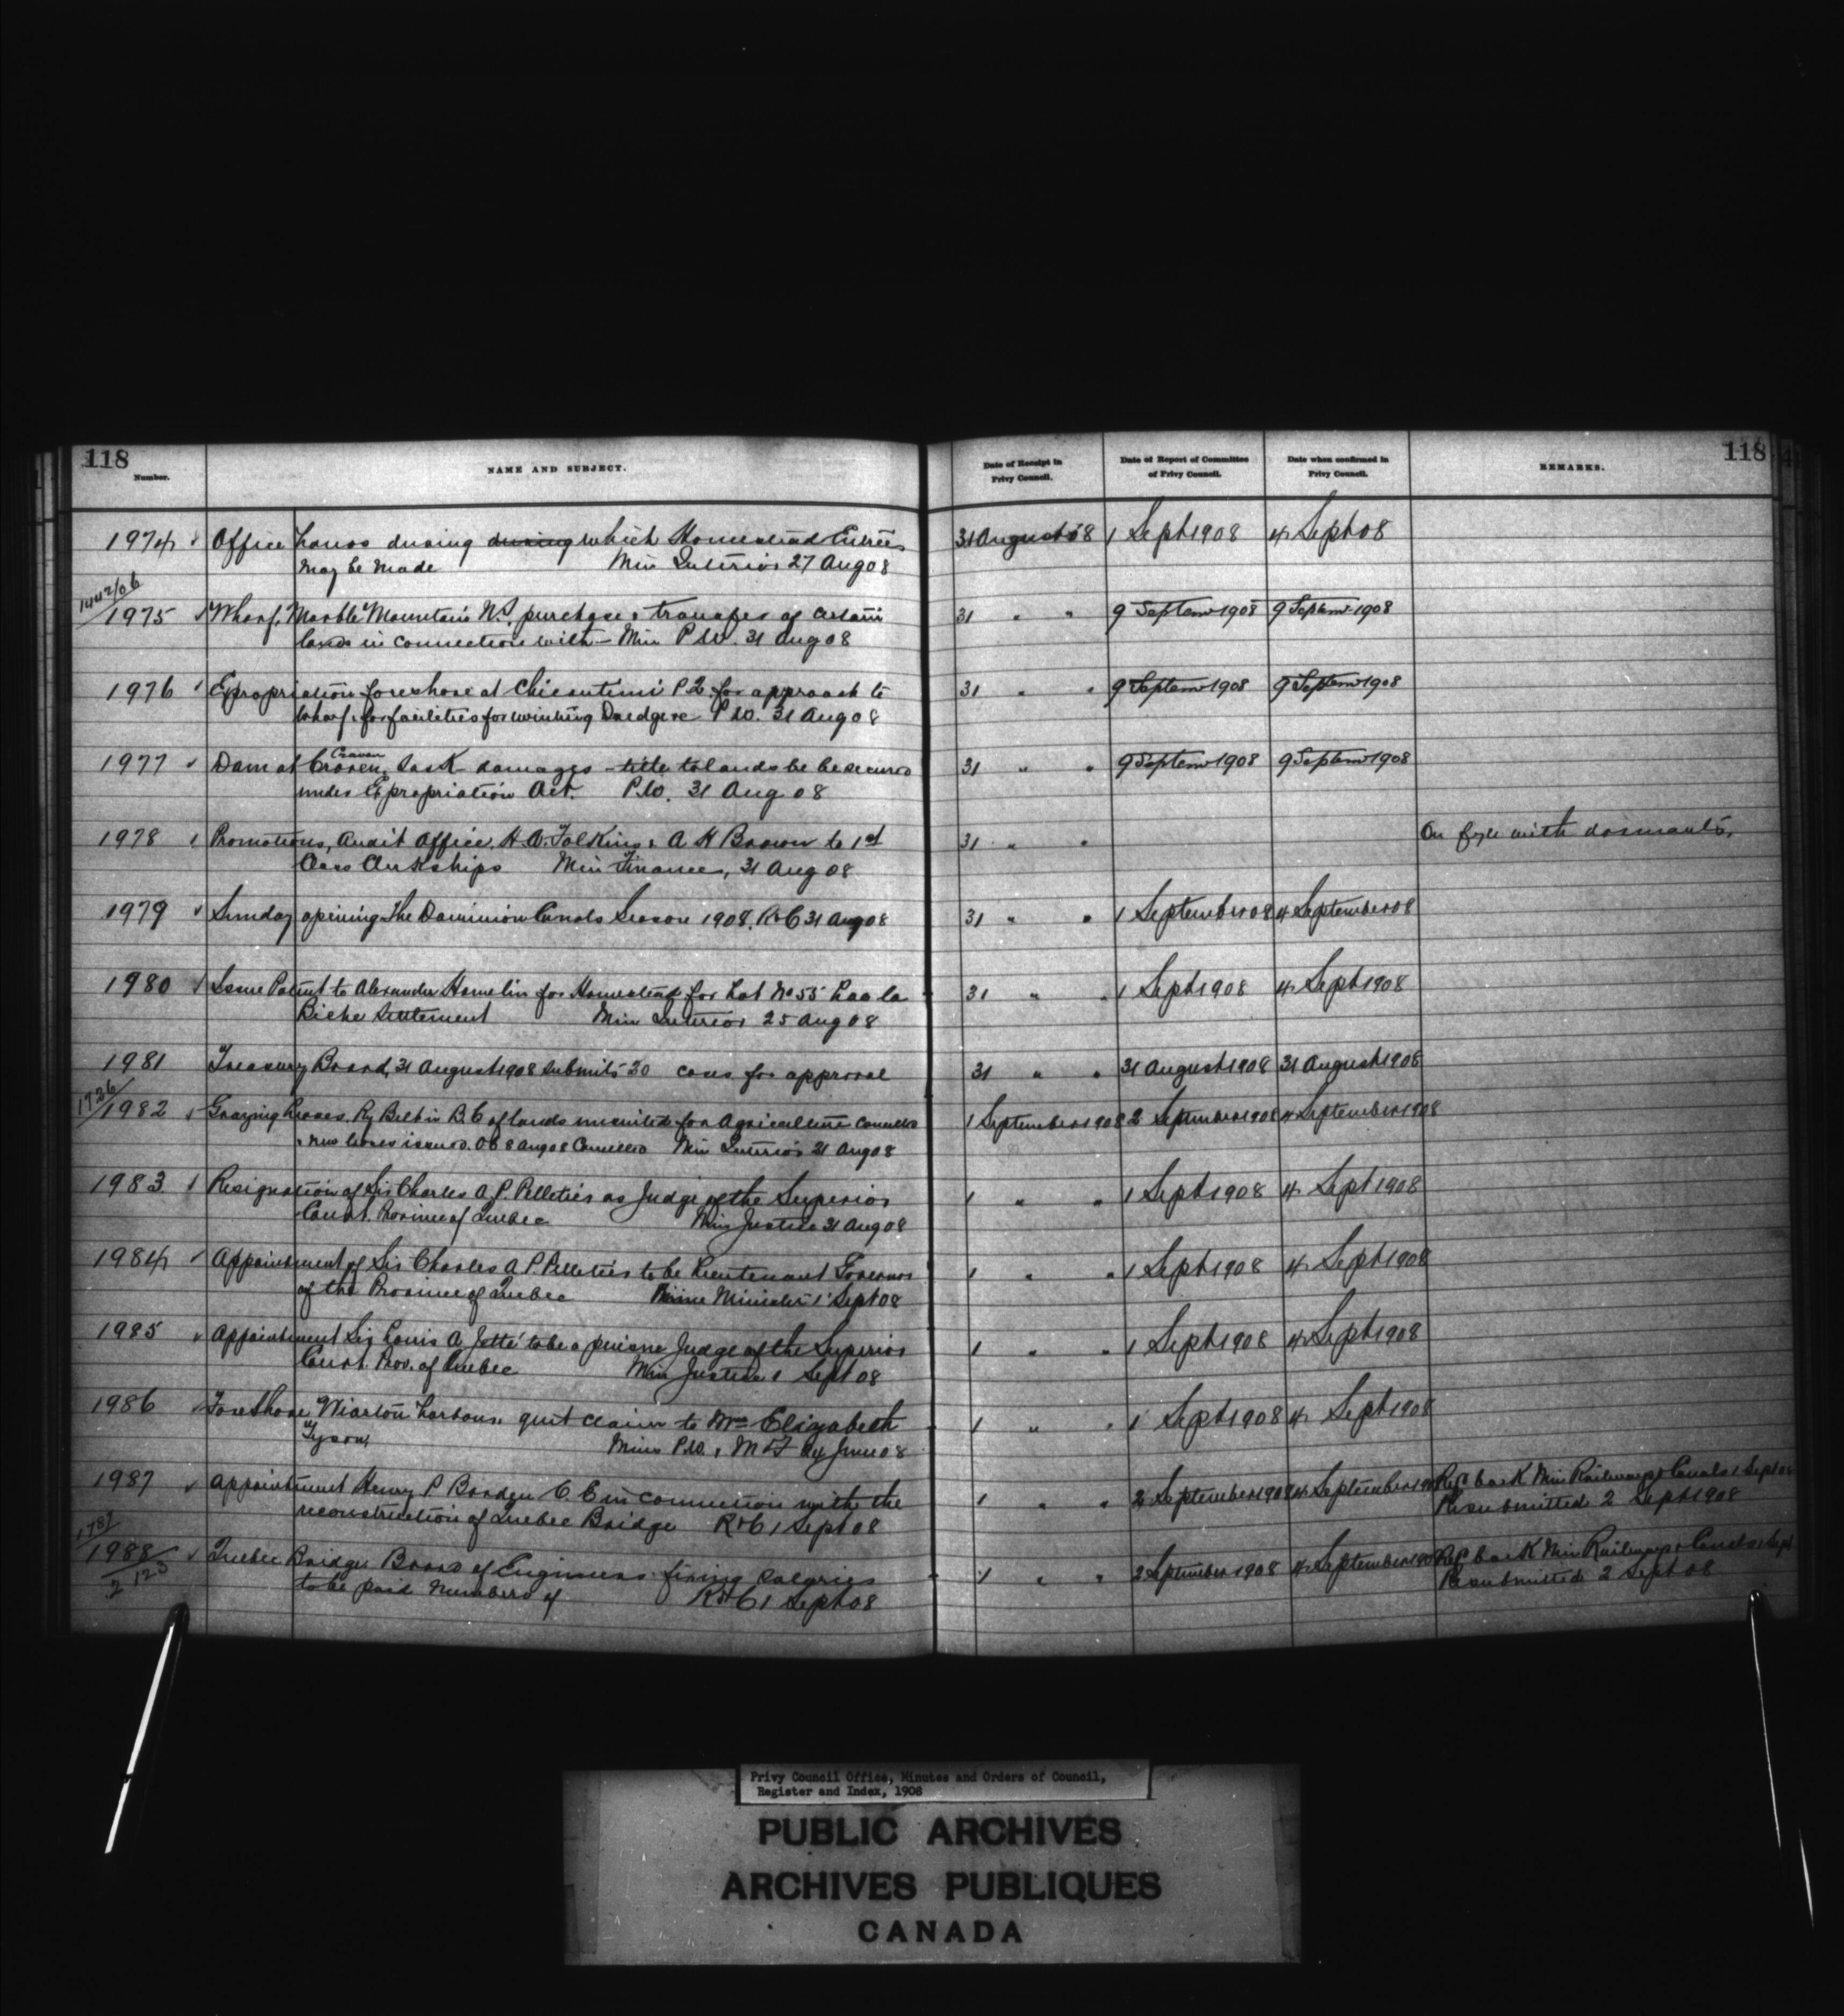 118
Number.
NAME AND SUBJECT.
Date of Receipt in Privy Council.
Date of Report of Committee of Privy Council.
Date when confirmed in Privy Council.
REMARKS.
118
1974 Office hours during during which Homestead Entries 31 August 08 1 Sept 1908 4 Sept 08
may be made Min Interior 27 Aug 08
1442/06
1975 Wharf, Marble Mountain N.S. purchase & transfer of certain 31 " " 9 Septemr 1908 9 Septemr 1908
lands in connection with - Min P.W. 31 Aug 08
1976 Expropriation foreshore at Chicoutimi P.Q. for approach to 31 " " 9 Septemr 1908 9 Septemr 1908
wharf & for facilities for wintering Dredge &c P.W. 31 Aug 08
1977 Dam at Croven Craven Sask damages - title to lands be be secured 31 " " 9 Septemr 1908 9 Septemr 1908
under Expropriation Act. P.W. 31 Aug 08
1978 Promotions, Audit Office, H.A. Folkins & A H Brown to 1st 31 " " On fyle with dormants.
Class Clerkships Min Finance, 31 Aug 08
1979 Sunday opening the Dominion Canals Season 1908. R&C 31 Aug 08 31 " " 1 September 08 4 September 08
1980 Issue Patent to Alexander Hamelin for Homestead for Lot No 55 Lac la 31 " " 1 Sept 1908 4 Sept 1908
Biche Settlement Min Interior 25 Aug 08
1981 Treasury Board, 31 August 1908 submits 30 cases for approval 31 " " 31 August 1908 31 August 1908
1726
1982 Grazing Leases. Ry Belt in B.C of lands unsuited for Agriculture cancelled 1 September 1908 2 September 1908 4 September 1908
& new leases issued. OC 8 Aug 08 Cancelled Min Interior 21 Aug 08
1983 Resignation of Sir Charles A.P. Pelletier as Judge of the Superior 1 " " 1 Sept 1908 4 Sept 1908
Court. Province of Quebec Min Justice 31 Aug 08
1984 Appointment of Sir Charles A P. Pelletier to be Lieutenant Governor 1 " " 1 Sept 1908 4 Sept 1908
of the Province of Quebec Prime Minister 1 Sept 08
1985 Appointment Sir Louis A Jetté to be a puisne Judge of the Superior 1 " " 1 Sept 1908 4 Sept 1908
Court. Prov. of Quebec Min Justice 1 Sept 08
1986 Foreshore Wiarton harbour, quit claim to Mrs Elizabeth 1 " " 1 Sept 1908 4 Sept 1908
Tyson, Mins P.W. & M&F 24 June 08
1987 Appointment Henry P Borden C.E in connection with the 1 " " 2 September 1908 4 September 1908 Refd back Min Railways & Canals 1 Sept 08
reconstruction of Quebec Bridge R&C 1 Sept 08 Resubmitted 2 Sept 1908
1787
1988 Quebec Bridge Board of Engineers fixing salaries 1 " " 2 September 1908 4 September 1908 Refd back Min Railways & Canals 1 Sept
2123 to be paid members of R&C 1 Sept 08 Resubmitted 2 Sept 08
Privy Council Office, Minutes and Orders of Council,
Register and Index, 1908
PUBLIC ARCHIVES
ARCHIVES PUBLIQUES
CANADA